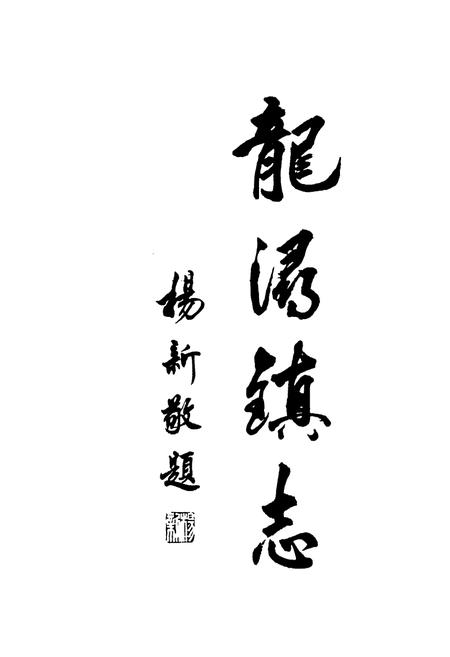 龍潯鎮志
楊新敬題